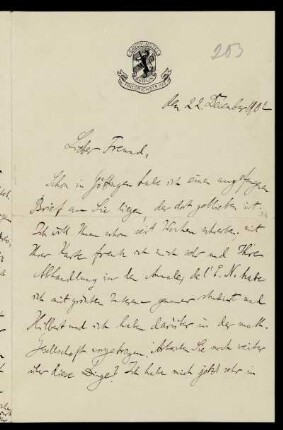 203
den 22 December 1902
Lieber Freund,
Schon in Göttingen habe ich einen angefangenen
Brief an Sie liegen, der dort geblieben ist.
Ich will Ihnen schon seit Wochen schreiben. Mit
Ihrer Karte freute ich mich sehr und Ihren
Abhandlung in den Annales de l'E. N. habe
ich mit grösstem Interesse genauer studiert und
Hilbert und ich haben darüber in der math.
Gesellschaft vorgetragen. Arbeiten Sie noch weiter
über diese Dinge? Ich habe mich jetzt sehr in